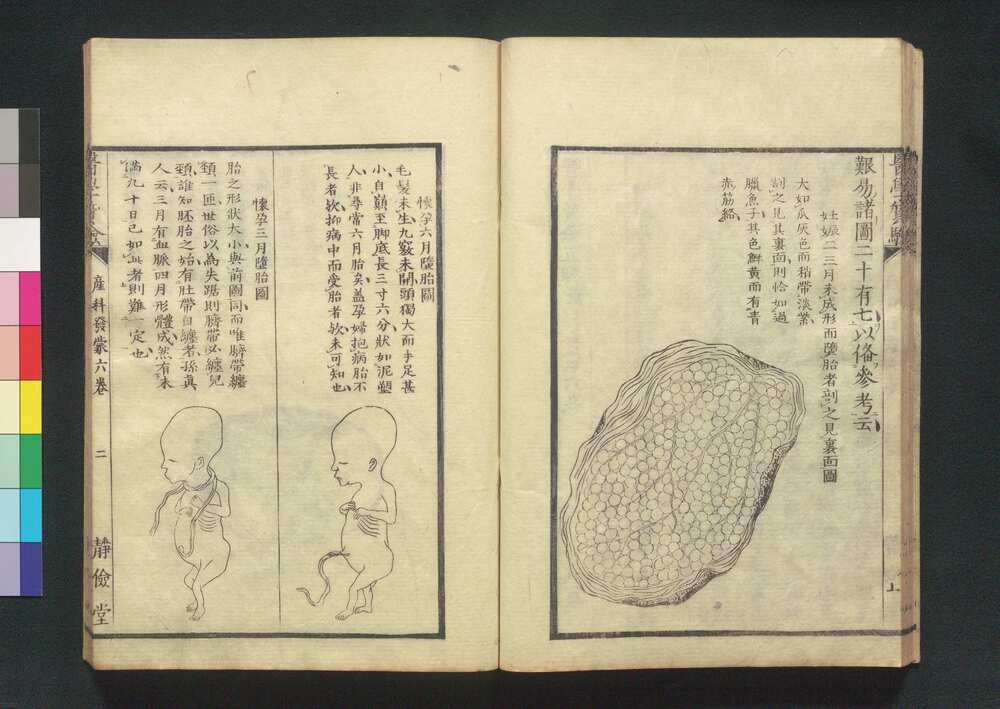 艱易諸圖二十有七以俻參考云
妊娠二三月未成形而墮胎者剖之見裏面圖
大如瓜灰色而稍帶淡紫
割之見其裏面則恰如過
臘魚子其色鮮黄而有青
赤筋絡
上
懷孕六月墮胎圖
毛髮未生九竅未開頭獨大而手足甚
小自巔至脚底長三寸六分狀如泥塑
人非尋常六月胎矣蓋孕婦抱病胎不
長者欤抑病中而受胎者欤未可知也
懷孕三月墮胎圖
胎之形狀大小與前圖同而唯臍帶纏
頚一匝世俗以為失踞則臍帶必纏兒
頚誰知胚胎之始有肚帶自纏者孫真
人云三月有血脈四月形體成然有未
滿九十日已如此者則難一定也
產科發蒙六卷
二
靜儉堂